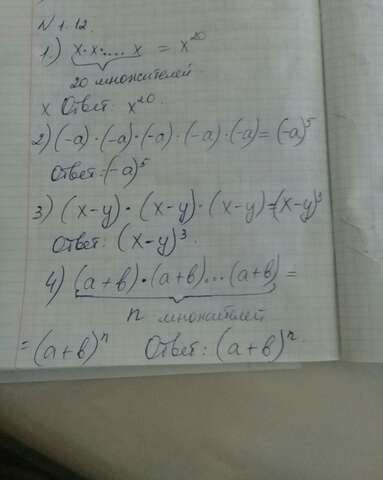 N 1.12.
1) x·x·.... x = x²⁰
20 множителей
x Ответ: x²⁰.
2) (-a)·(-a)·(-a)·(-a)·(-a)=(-a)⁵
Ответ: (-a)⁵
3) (x-y)·(x-y)·(x-y)=(x-y)³
Ответ: (x-y)³.
4) (a+b)·(a+b)...(a+b) =
n множителей
= (a+b)ⁿ Ответ: (a+b)ⁿ.